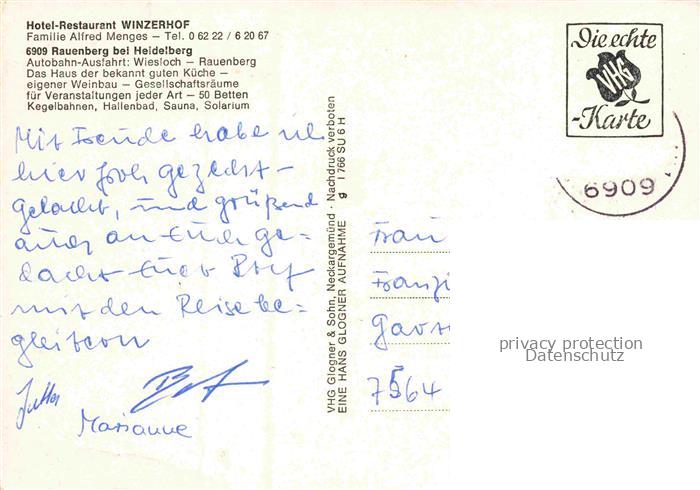 Hotel-Restaurant WINZERHOF
Familie Alfred Menges — Tel. 0 62 22 / 6 20 67
6909 Rauenberg bei Heidelberg
Autobahn-Ausfahrt: Wiesloch — Rauenberg
Das Haus der bekannt guten Küche —
eigener Weinbau — Gesellschaftsräume
für Veranstaltungen jeder Art — 50 Betten
Kegelbahnen, Hallenbad, Sauna, Solarium
Mit Freude habe ich
hier froh gezecht -
gelacht, und grüßend
auch an Euch ge=
dacht Euer
mit den Reisebe=
gleitern
Jutta
Marianne
VHG Glogner & Sohn, Neckargemünd · Nachdruck verboten
EINE HANS GLOGNER AUFNAHME g I 766 SU 6 H
Die echte
VHG
-Karte
6909
Frau
Franzi
7564
privacy protection
Datenschutz